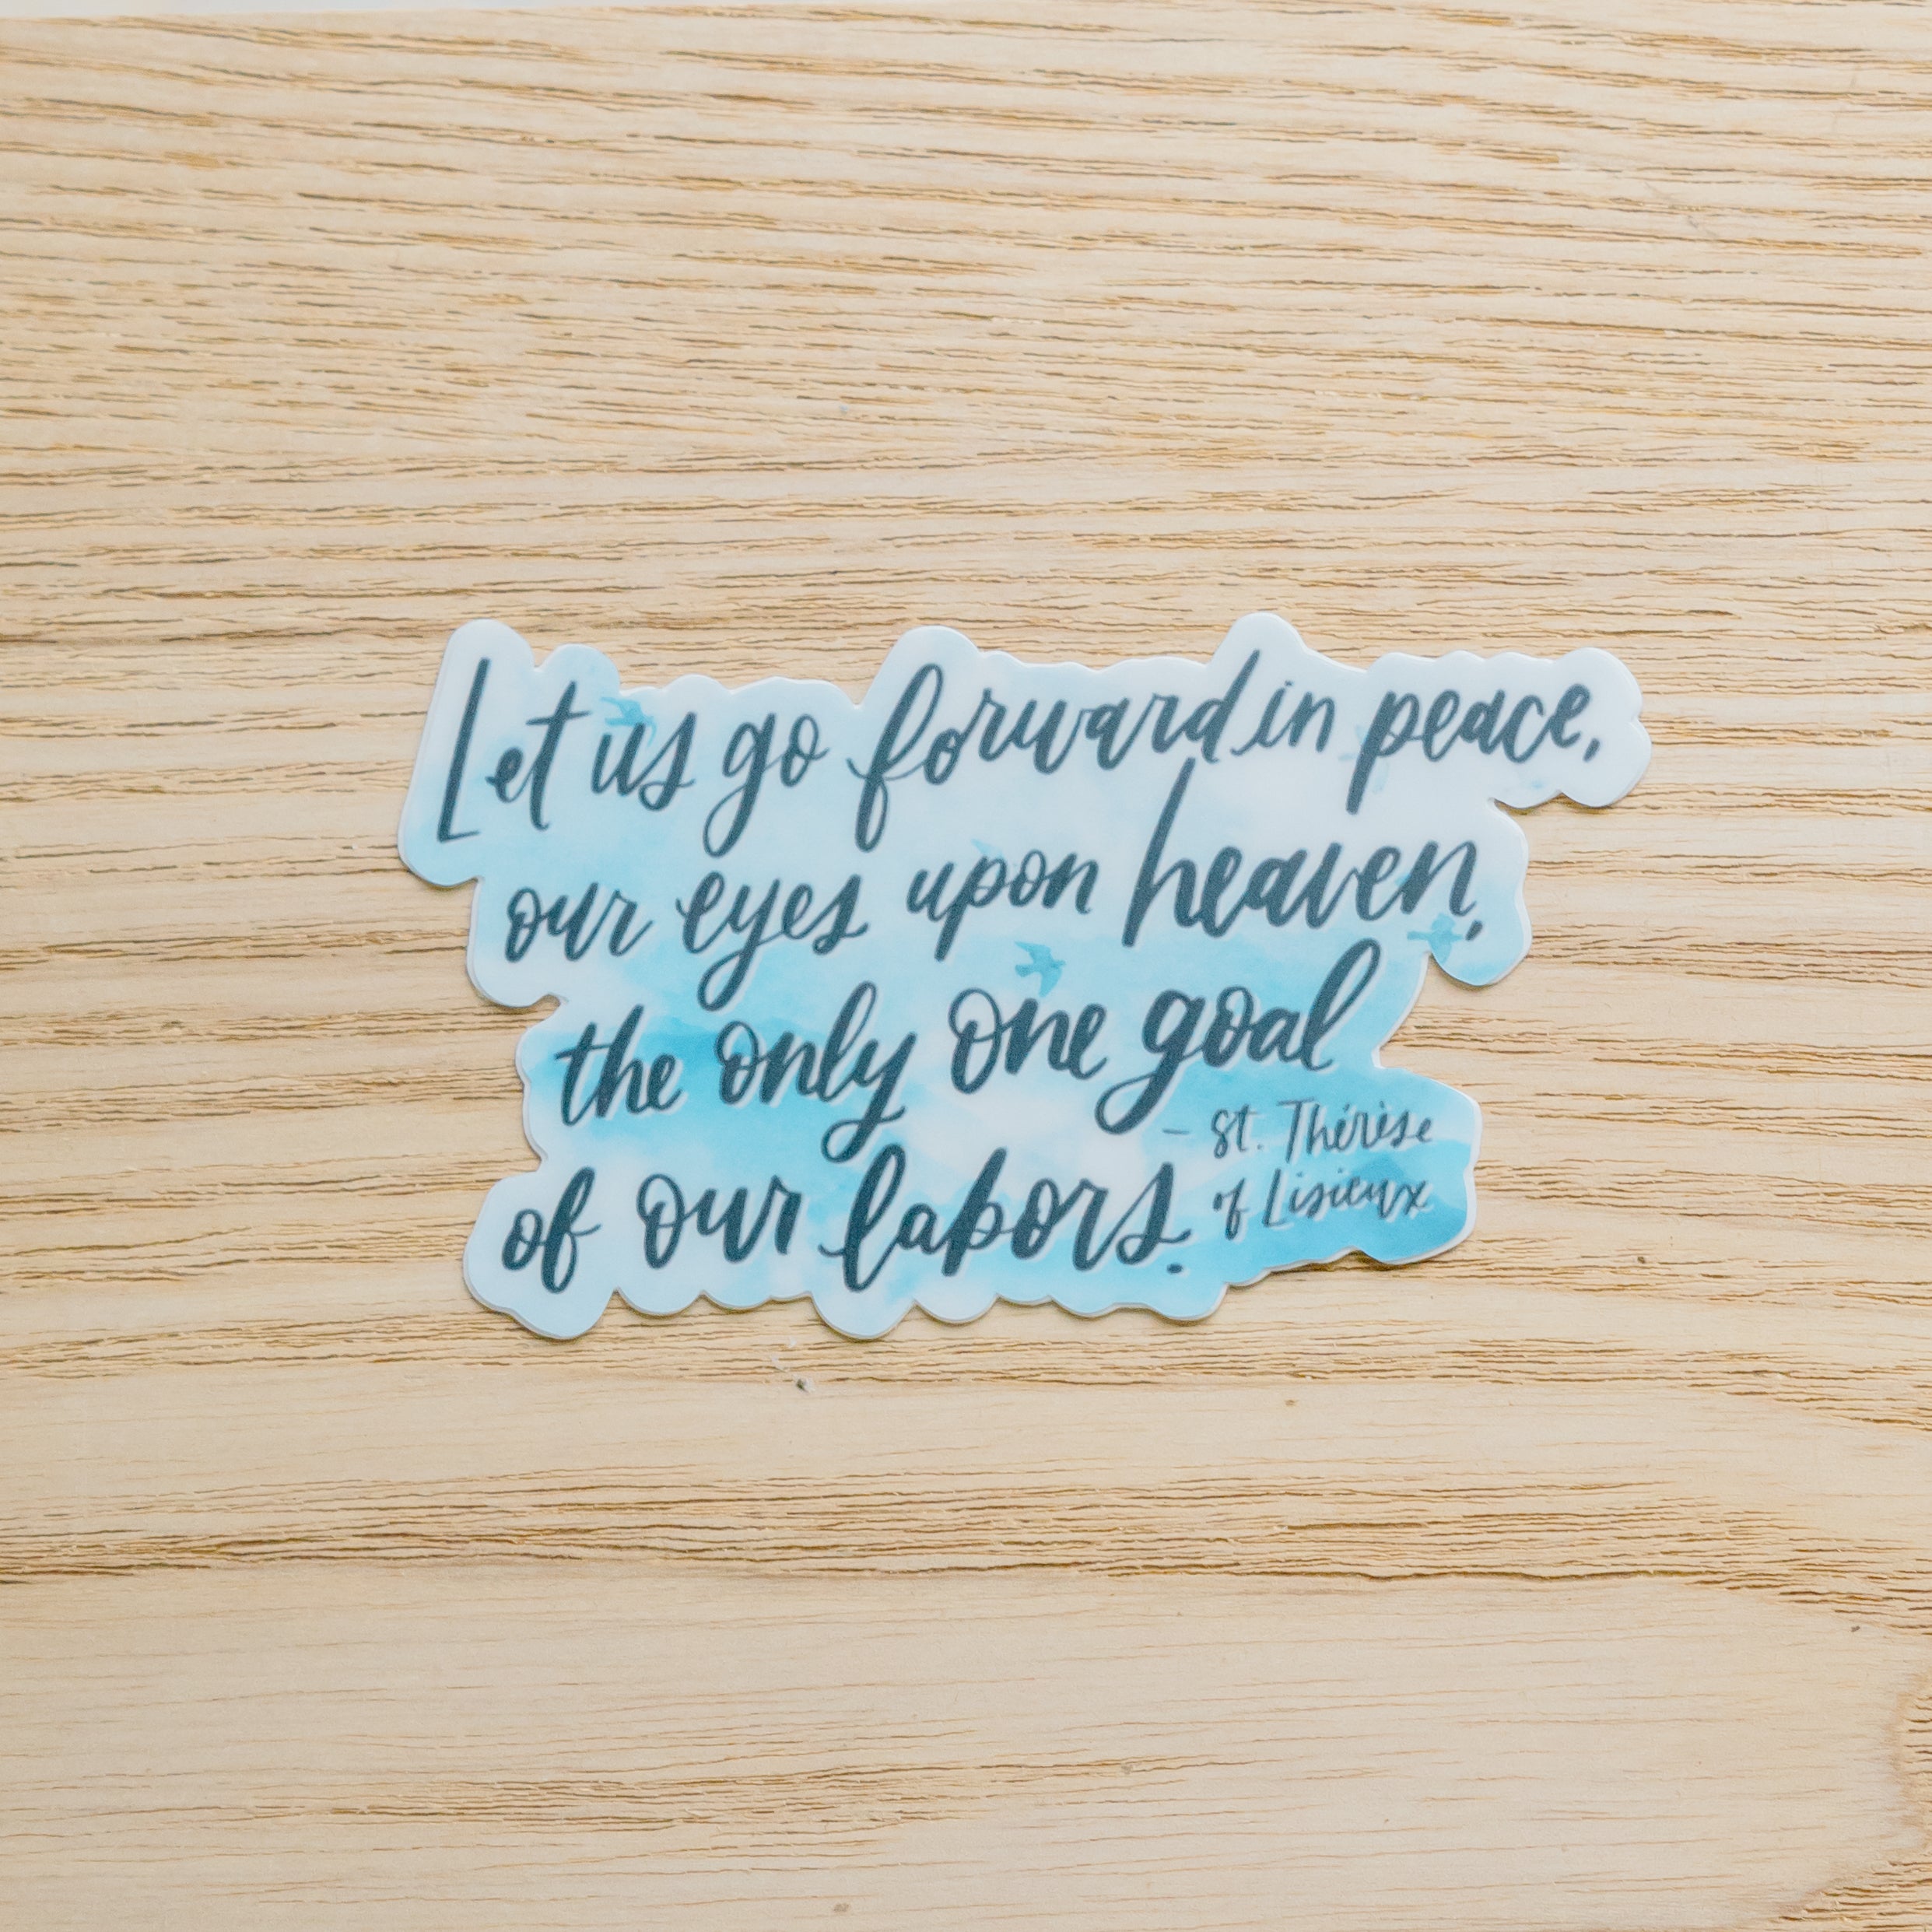 Let us go forward in peace,
our eyes upon heaven,
the only one goal
of our labors.
- St. Thérèse
of Lisieux